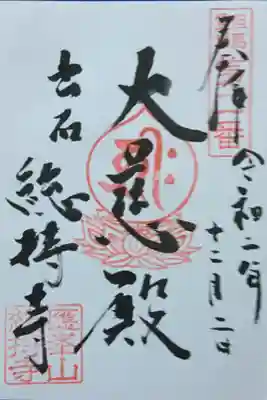 奉拝
令和二年
十二月二日
大悲殿
出石
総持寺